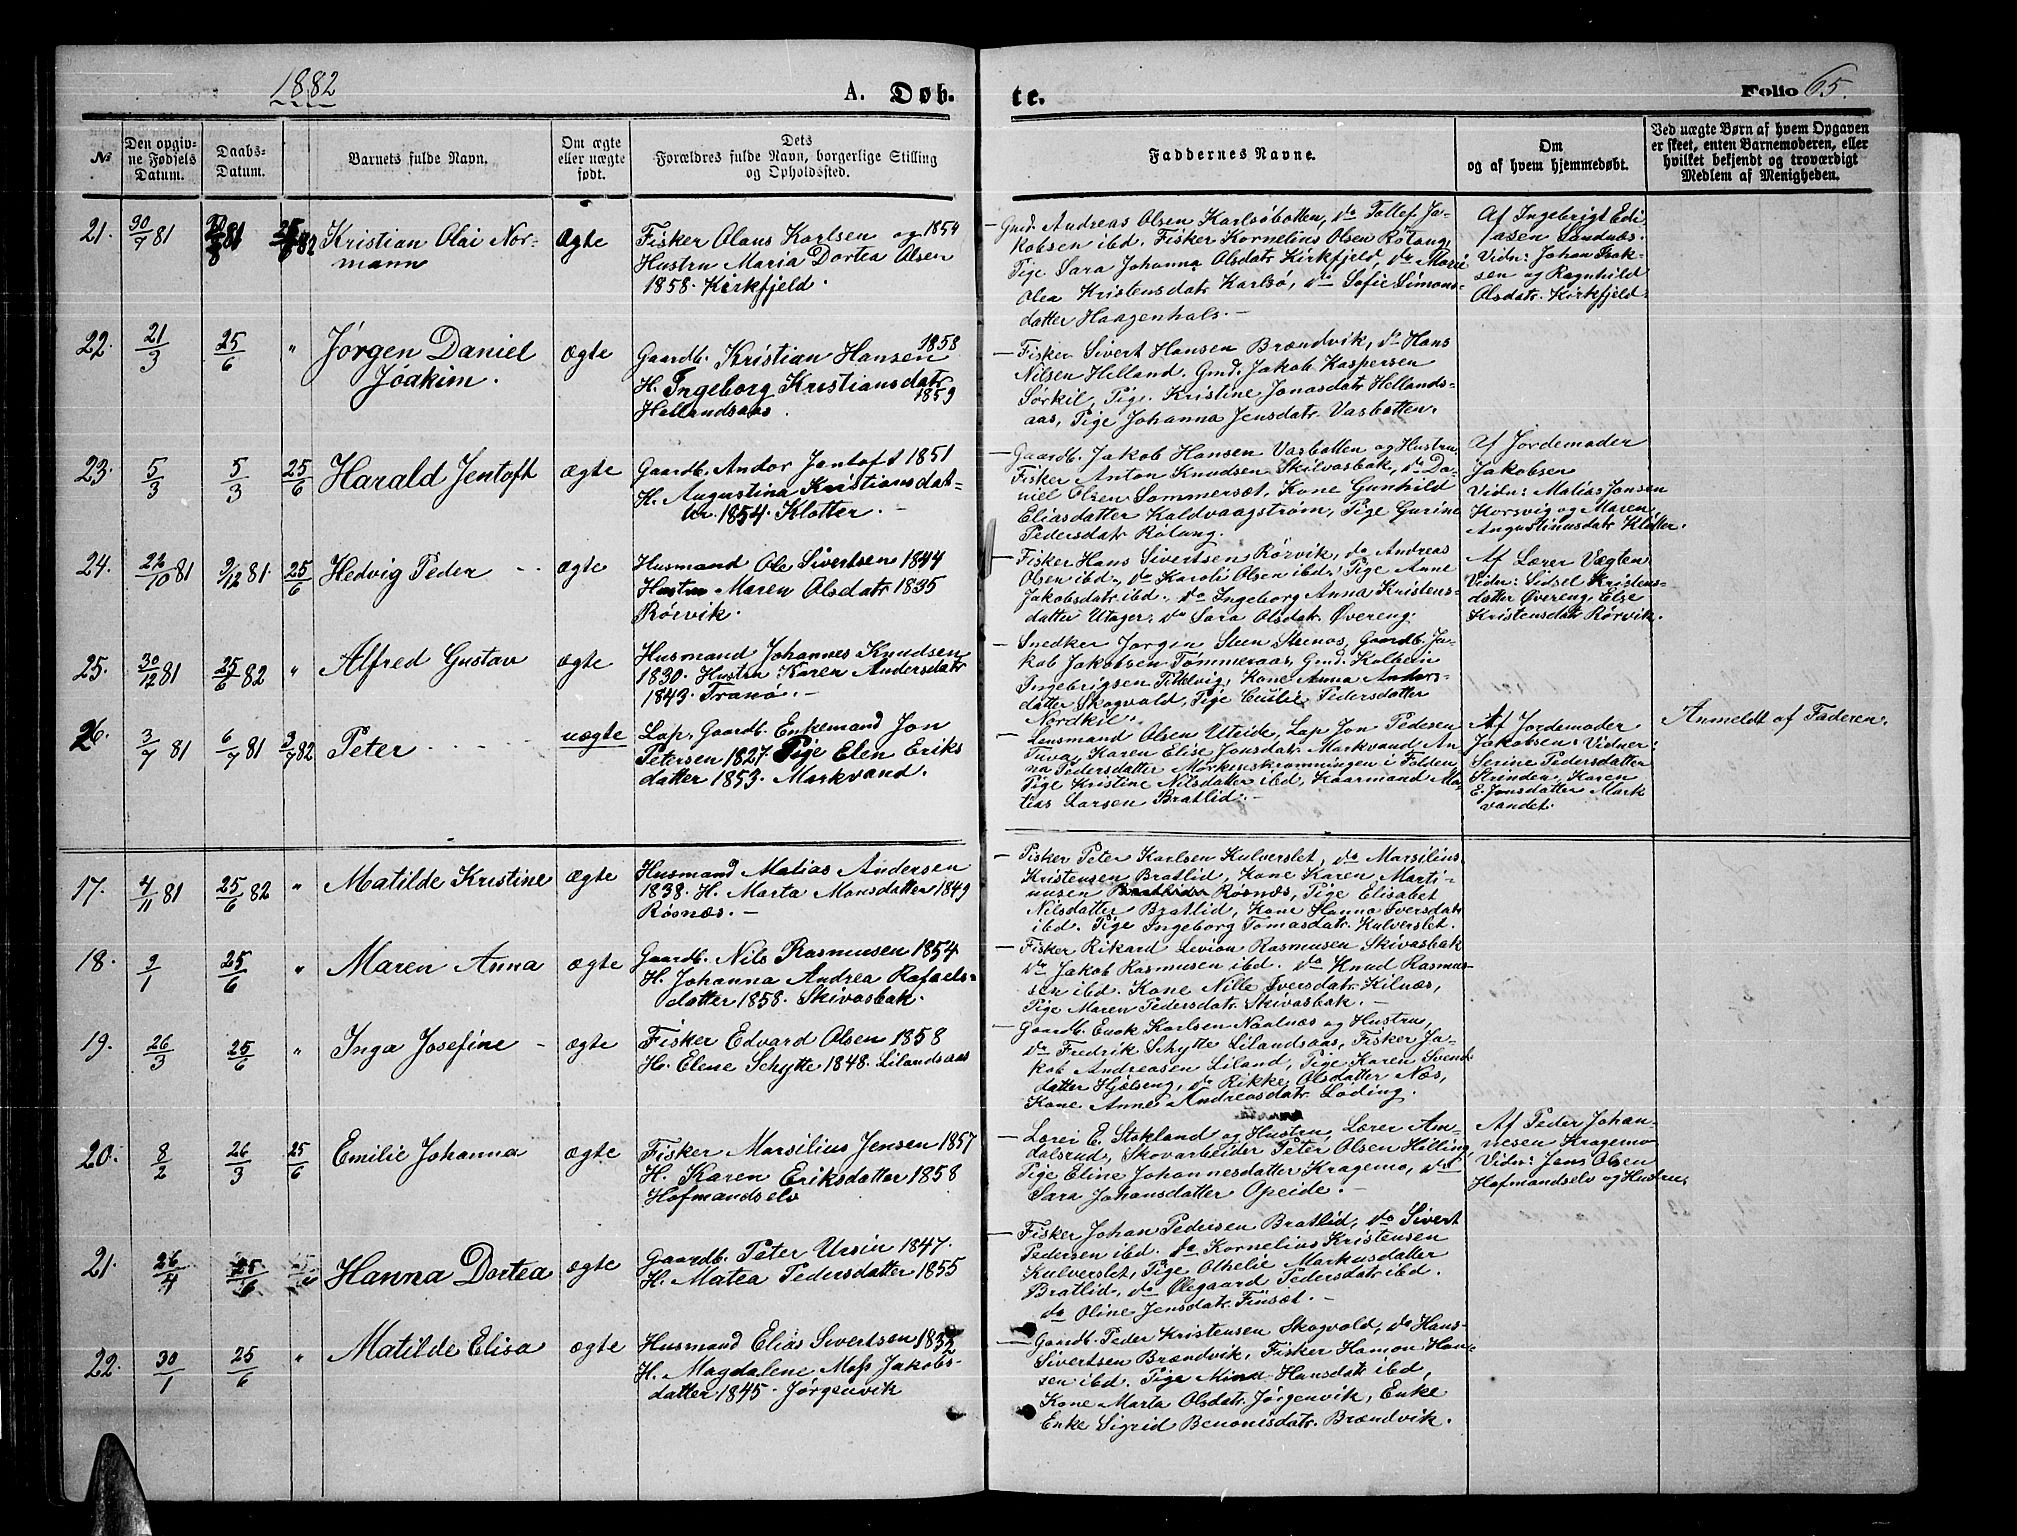 1882
A. Døb.
te.
Folio 65.
№
Den opgiv-
ne Fødsels
Datum.
Daabs-
Datum.
Barnets fulde Navn.
Om ægte
eller uægte
født.
Dets
Forældres fulde Navn, borgerlige Stilling
og Opholdssted.
Faddernes Navne.
Om
og af hvem hjemmedøbt.
Ved uægte Børn af hvem Opgaven
er skeet, enten Barnemoderen, eller
hvilket bekjendt og troværdigt
Medlem af Menigheden.
21. 30/7 81 /8 81 25/6 82 Kristian Olai Nor-
mann
Ægte
Fisker Olaus Karlsen og 1854
Hustru Maria Dortea Olsen
1858. Kirkfjeld.
Gmd. Andreas Olsen Karlsøbotten, do Tollef Ja-
kobsen ibd. Fisker Kornelius Olsen Rotang,
Pige Sara Johanna Olsdatr. Kirkfjeld, do Marie
Olea Kristensdatr. Karlsø, do Sofie Simons-
datter Haagenhals.
Af Ingebrigt Edi-
asen Sandnæs.
Vidn: Johan Isak-
sen og Ragnhild
Olsdatr. Kirkfjeld.
22. 21/3 25/6 " Jørgen Daniel
Joakim.
Ægte
Gaardb. Kristian Hansen 1858
H. Ingeborg Kristiansdatr
1859
Hellandsaas.
Fisker Sivert Hansen Brændvik, do Hans
Nilsen Helland. Gmd. Jakob Kaspersen
Sørkil, Pige Kristine Jonasdatr. Hellands-
aas, Pige Johanna Jensdatr. Vasbotten.
23. 5/3 5/3 25/6 Harald Jentoft ægte
Gaardb. Andor Jentoft 1851
H. Augustina Kristiansdat-
ter. 1854. Klotter.
Gaardb. Jakob Hansen Vasbotten og Hustru,
Fisker Anton Knudsen Skilvasbak, do Da-
niel Olsen Sommersæt, Kone Gunhild
Eliasdatter Kaldvaagstrøm, Pige Gurine
Pedersdatr. Rotang.
Af Jordemoder
Jakobsen
Vidn: Matias Jonsen
Korsvig og Maren
Augustinusdatr. Klotter.
24. 22/10 81 9/12 81. 25/6 Hedvig Peder ægte
Husmand Ole Sivertsen 1844
Hustru Maren Olsdatr 1835
Rørvik.
Fisker Hans Sivertsen Rørvik, do Andreas
Olsen ibd., do Karoli Olsen ibd., Pige Anne
Jakobsdatr. ibd., do Ingeborg Anna Kristens-
datter Utager, do Sara Olsdatr. Øvereng.
Af Lærer Vægten
Vidn: Sidsel Kristens-
datter Øvereng, Else
Kristensdatr. Rørvik.
25. 30/12 81 25/6 82 " Alfred Gustav ægte
Husmand Johannes Knudsen
1830. Hustru Karen Andersdatr
1843. Tranø.
Snedker Jørgen Steen Stenos, Gaardb. Ja-
kob Jakobsen Tømmeraas, Gmd. Kolbein
Ingebrigtsen Tittelvig, Kone Anna Anders-
datter Skogvold, Pige Pedersdatter
Nordkil.
26. 3/7 81 6/7 81 9/7 82 Peter uægte
Lap, Gaardb. Enkemand Jon
Petersen 1827. Pige Elen Eriks
datter 1853. Markvand.
Lensmand Olsen Uteide, Lap Jon Pedersen
Tuva, Karen Elise Jonsdatr. Markvand, An-
na Pedersdatter Mørkenskrømningen i Folden,
Pige Kristine Nilsdatter ibd, Kaarmand Ma-
tias Larsen Bratlid.
Af Jordemoder
Jakobsen. Vidner:
Serine Pedersdatter
Strinden, Karen
E. Jonsdatter Mark
vandet.
Anmeldt af Faderen.
17. 4/11 81 25/6 82 " Matilde Kristine ægte
Husmand Matias Andersen
1838. H. Marta Monsdatter 1849
Røsnæs.
Fisker Peter Karlsen Kulverslet, do Marsilius
Kristensen Bratlid, Kone Karen Marti-
nusen Røsnæs, Pige Elisabet
Nilsdatter Bratlid, Kone Hanna Iversdatr
ibd. Pige Ingeborg Tomasdatr. Kulverslet.
18. 9/1 25/6 " Maren Anna ægte
Gaardb. Nils Rasmusen 1854.
H. Johanna Andrea Rafaels-
datter 1858. Skivasbak.
Fisker Rikard Levion Rasmusen Skivasbak
do Jakob Rasmusen ibd. do Knud Rasmus-
sen ibd. Kone Nille Iversdatr. Kilnæs,
Pige Maren Pedersdatr. Skivasbak.
19. 26/3 25/6 " Inga Josefine ægte
Fisker Edvard Olsen 1858
H. Elene Schytte 1848. Lilandsaas
Gaardb. Enok Karlsen Naalnæs og Hustru,
do Fredrik Schytte Lilandsaas, Fisker Ja-
kob Andreasen Liland, Pige Karen Svend
datter Hjelseng, do Rikke Olsdatter Næs,
Kone Anne Andreasdatr. Løding.
20. 8/2 26/3 25/6 Emilie Johanna ægte
Fisker Marsilius Jensen 1857
H. Karen Eriksdatter 1858
Hofmandselv
Lærer E. Stokland og Hustru, Lærer Am-
dalsrud, Skovarbeider Peter Olsen Hilling,
Pige Eline Johannesdatter Kragemo, do
Sara Johansdatter Opeide.
Af Peder Johan-
nesen Kragemo
Vidn: Jens Olsen
Hofmandselv og Hustru.
21. 26/4 25/6 Hanna Dortea ægte
Gaardb. Peter Ursin 1847.
H. Matea Pedersdatter 1855
Fisker Johan Pedersen Bratlid, do Sivert
Pedersen ibd. do Kornelius Kristensen
Kulverslet, Pige Othelie Markusdatter
Bratlid, do Olegaard Pedersdatr. ibd.
do Oline Jensdatr. Finsæt.
22. 30/1 25/6 " Matilde Elisa ægte
Husmand Elias Sivertsen 1832
H. Magdalene Moss Jakobs-
datter 1845. Jørgenvik
Gaardb. Peder Kristensen Skogvold, do Hans
Sivertsen Brændvik, Fisker Hamon Han-
sen ibd. Pige Mina Hansdatr. ibd,
Kone Marta Olsdatr. Jørgenvik, Enke
Enke Sigrid Benonisdatr. Brændvik.